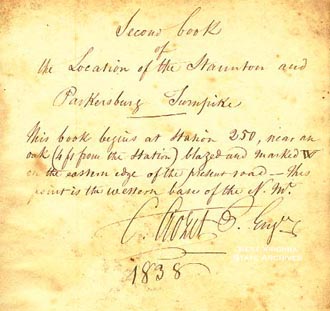 Second book
of
the Location of the Staunton and
Parkersburg Turnpike
This book begins at Station 250, near an
oak (4 ft from the Station) blazed and marked IV
on the eastern edge of the present road — this
point is the western base of the N. Mn.
C. Crozet P. Engr.
1838
WEST VIRGINIA
STATE ARCHIVES